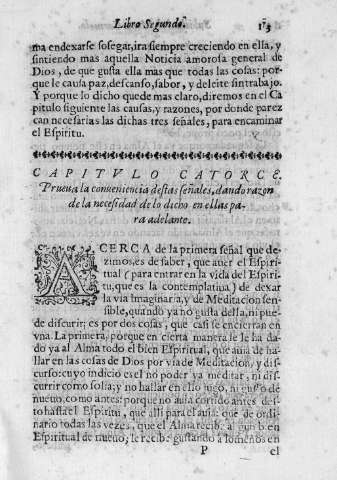 Libro Segundo.
ma endexarse sosegar, ira siempre creciendo en ella, y
sintiendo mas aquella Noticia amorosa general de
Dios, de que gusta ella mas que todas las cosas: por-
que le causa paz, descanso, sabor, y deleite sin trabajo.
Y porque lo dicho quede mas claro, diremos en el Ca
pitulo siguiente las causas, y razones, por donde parez
can necesarias las dichas tres señales, para encaminar
el Espiritu.
CAPITVLO CATORCE.
Prueva la conveniencia destas señales, dando razon
de la necesidad de lo dicho en ellas pa-
ra adelante.
ACERCA de la primera señal que de-
zimos, es de saber, que aver el Espiri-
tual (para entrar en la vida del Espiri-
tu, que es la contemplativa) de dexar
la via Imaginaria, y de Meditacion sen-
sible, quando ya no gusta della, ni pue-
de discurrir; es por dos cosas, que casi se encierran en
vna. La primera, porque en cierta manera le ha da-
do ya al Alma todo el bien Espiritual, que avia de ha-
llar en las cosas de Dios por via de Meditacion, y dis-
curso: cuyo indicio es el no poder ya meditar, ni dis-
currir como solia; y no hallar en ello jugo, ni gusto de
nuevo, como antes: porque no avia corrido antes des-
to hasta el Espiritu, que alli para el avia: que de ordi-
nario todas las vezes, que el Alma recibe algun bien
Espiritual de nuevo; le recibe gustando a lo menos en
P
el